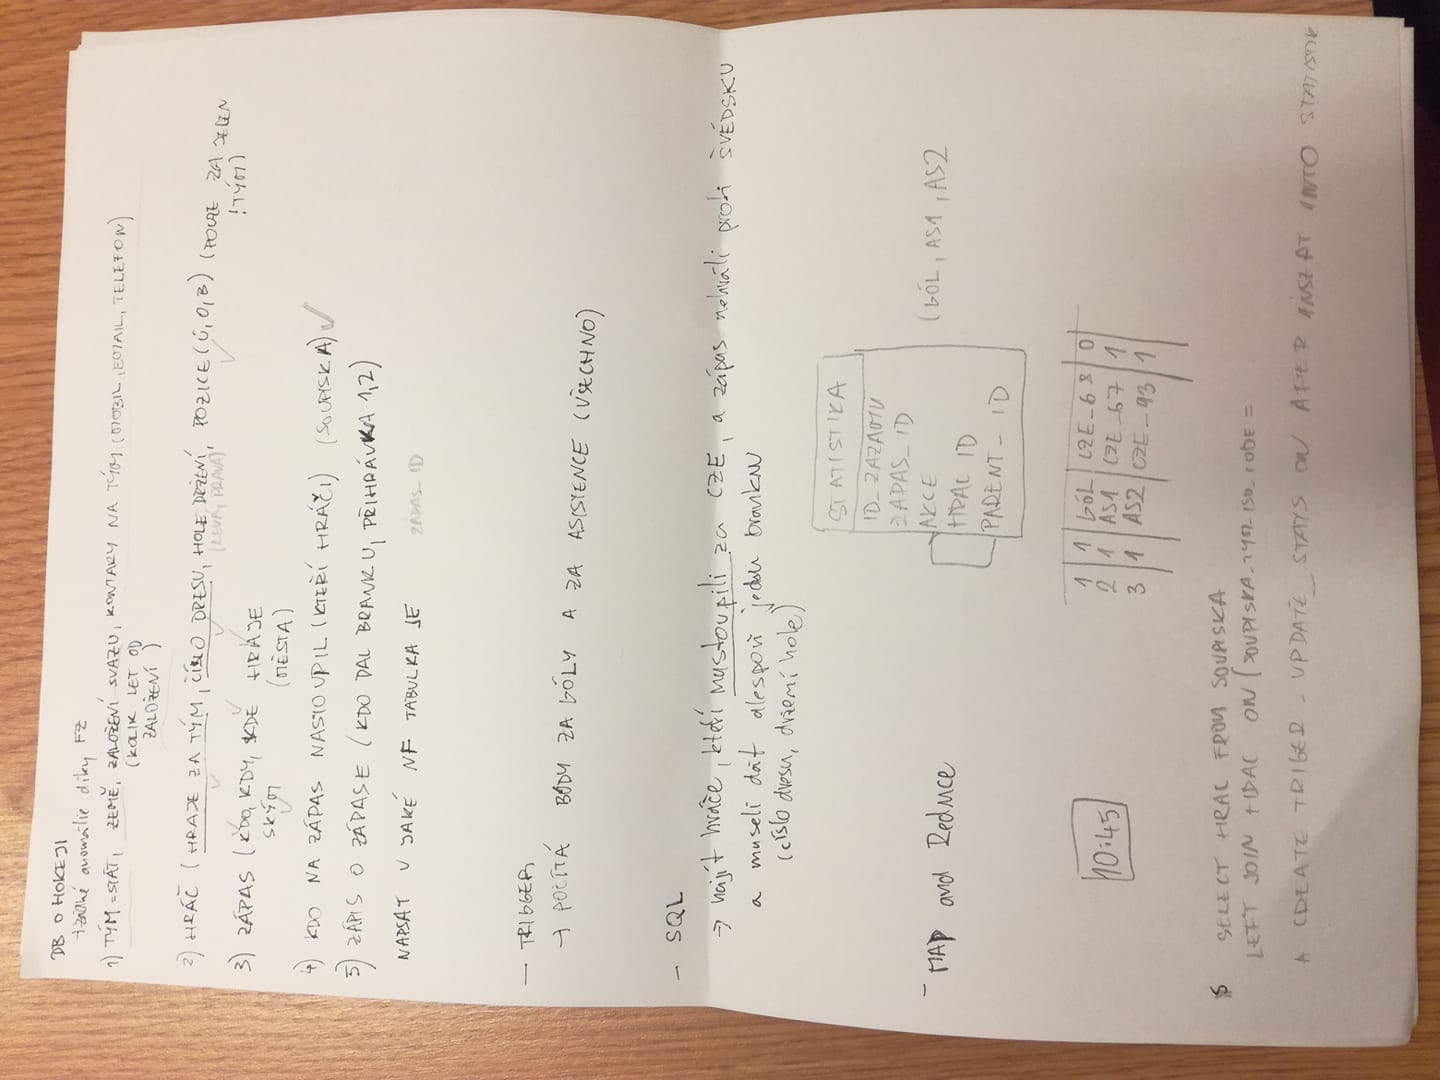 DB O HOKEJI
→ žádné anomálie díky FZ
1) TÝM = STÁT, ZEMĚ, ZALOŽENÍ SVAZU, KONTAKY NA TÝM (MOBIL, EMAIL, TELEFON)
(KOLIK LET OD
ZALOŽENÍ)
2) HRÁČ (HRAJE ZA TÝM, ČÍSLO DRESU, HOLE DRŽENÍ, POZICE (Ú, O, B) (POUZE ZA JEDEN
(LEVÁ, PRAVÁ)
!TÝM)
3) ZÁPAS (KDO, KDY, KDE HRAJE
S KÝM (MĚSTA)
4) KDO NA ZÁPAS NASTOUPIL (KTEŘÍ HRÁČI) (SOUPISKA) ✓
5) ZÁPIS O ZÁPASE (KDO DAL BRANKU, PŘIHRÁVKA 1,2)
NAPSAT V JAKÉ NF TABULKA JE
ZAPAS_ID
- TRIGGER
→ POČÍTÁ BODY ZA GÓLY A ZA ASISTENCE (VŠECHNO)
- SQL
→ najít hráče, kteří nastoupili za CZE, a zápas nehráli proti ŠVÉDSKU
a museli dát alespoň jednu branku
(číslo dresu, držení hole)
STATISTIKA
ID_ZAZAMU
ZAPAS_ID
AKCE
HRAC ID
PARENT_ID
(GÓL, AS1, AS2)
- MAP and Reduce
1 | 1 | GÓL | CZE_68 | 0
2 | 1 | AS1 | CZE_67 | 1
3 | 1 | AS2 | CZE_93 | 1
10:45
SELECT HRAC FROM SOUPISKA
LEFT JOIN HRAC ON (SOUPISKA.TYM_ISO_CODE =
CREATE TRIGER - UPDATE_STATS ON AFTER INSERT INTO STATISTIK